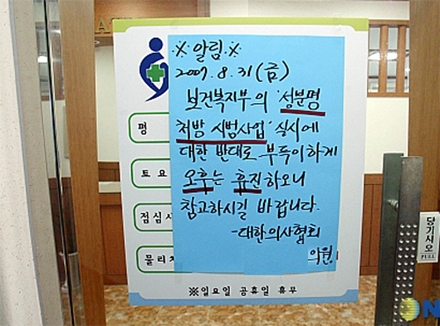 ※알림※
2007. 8. 31 (금)
보건복지부의 '성분명
처방 시범사업' 실시에
대한 반대로 부득이하게
오후는 휴진하오니
참고하시길 바랍니다.
-대한의사협회
의원
평
토요
점심시
물리치
※일요일 공휴일 휴무
당기시오
PULL